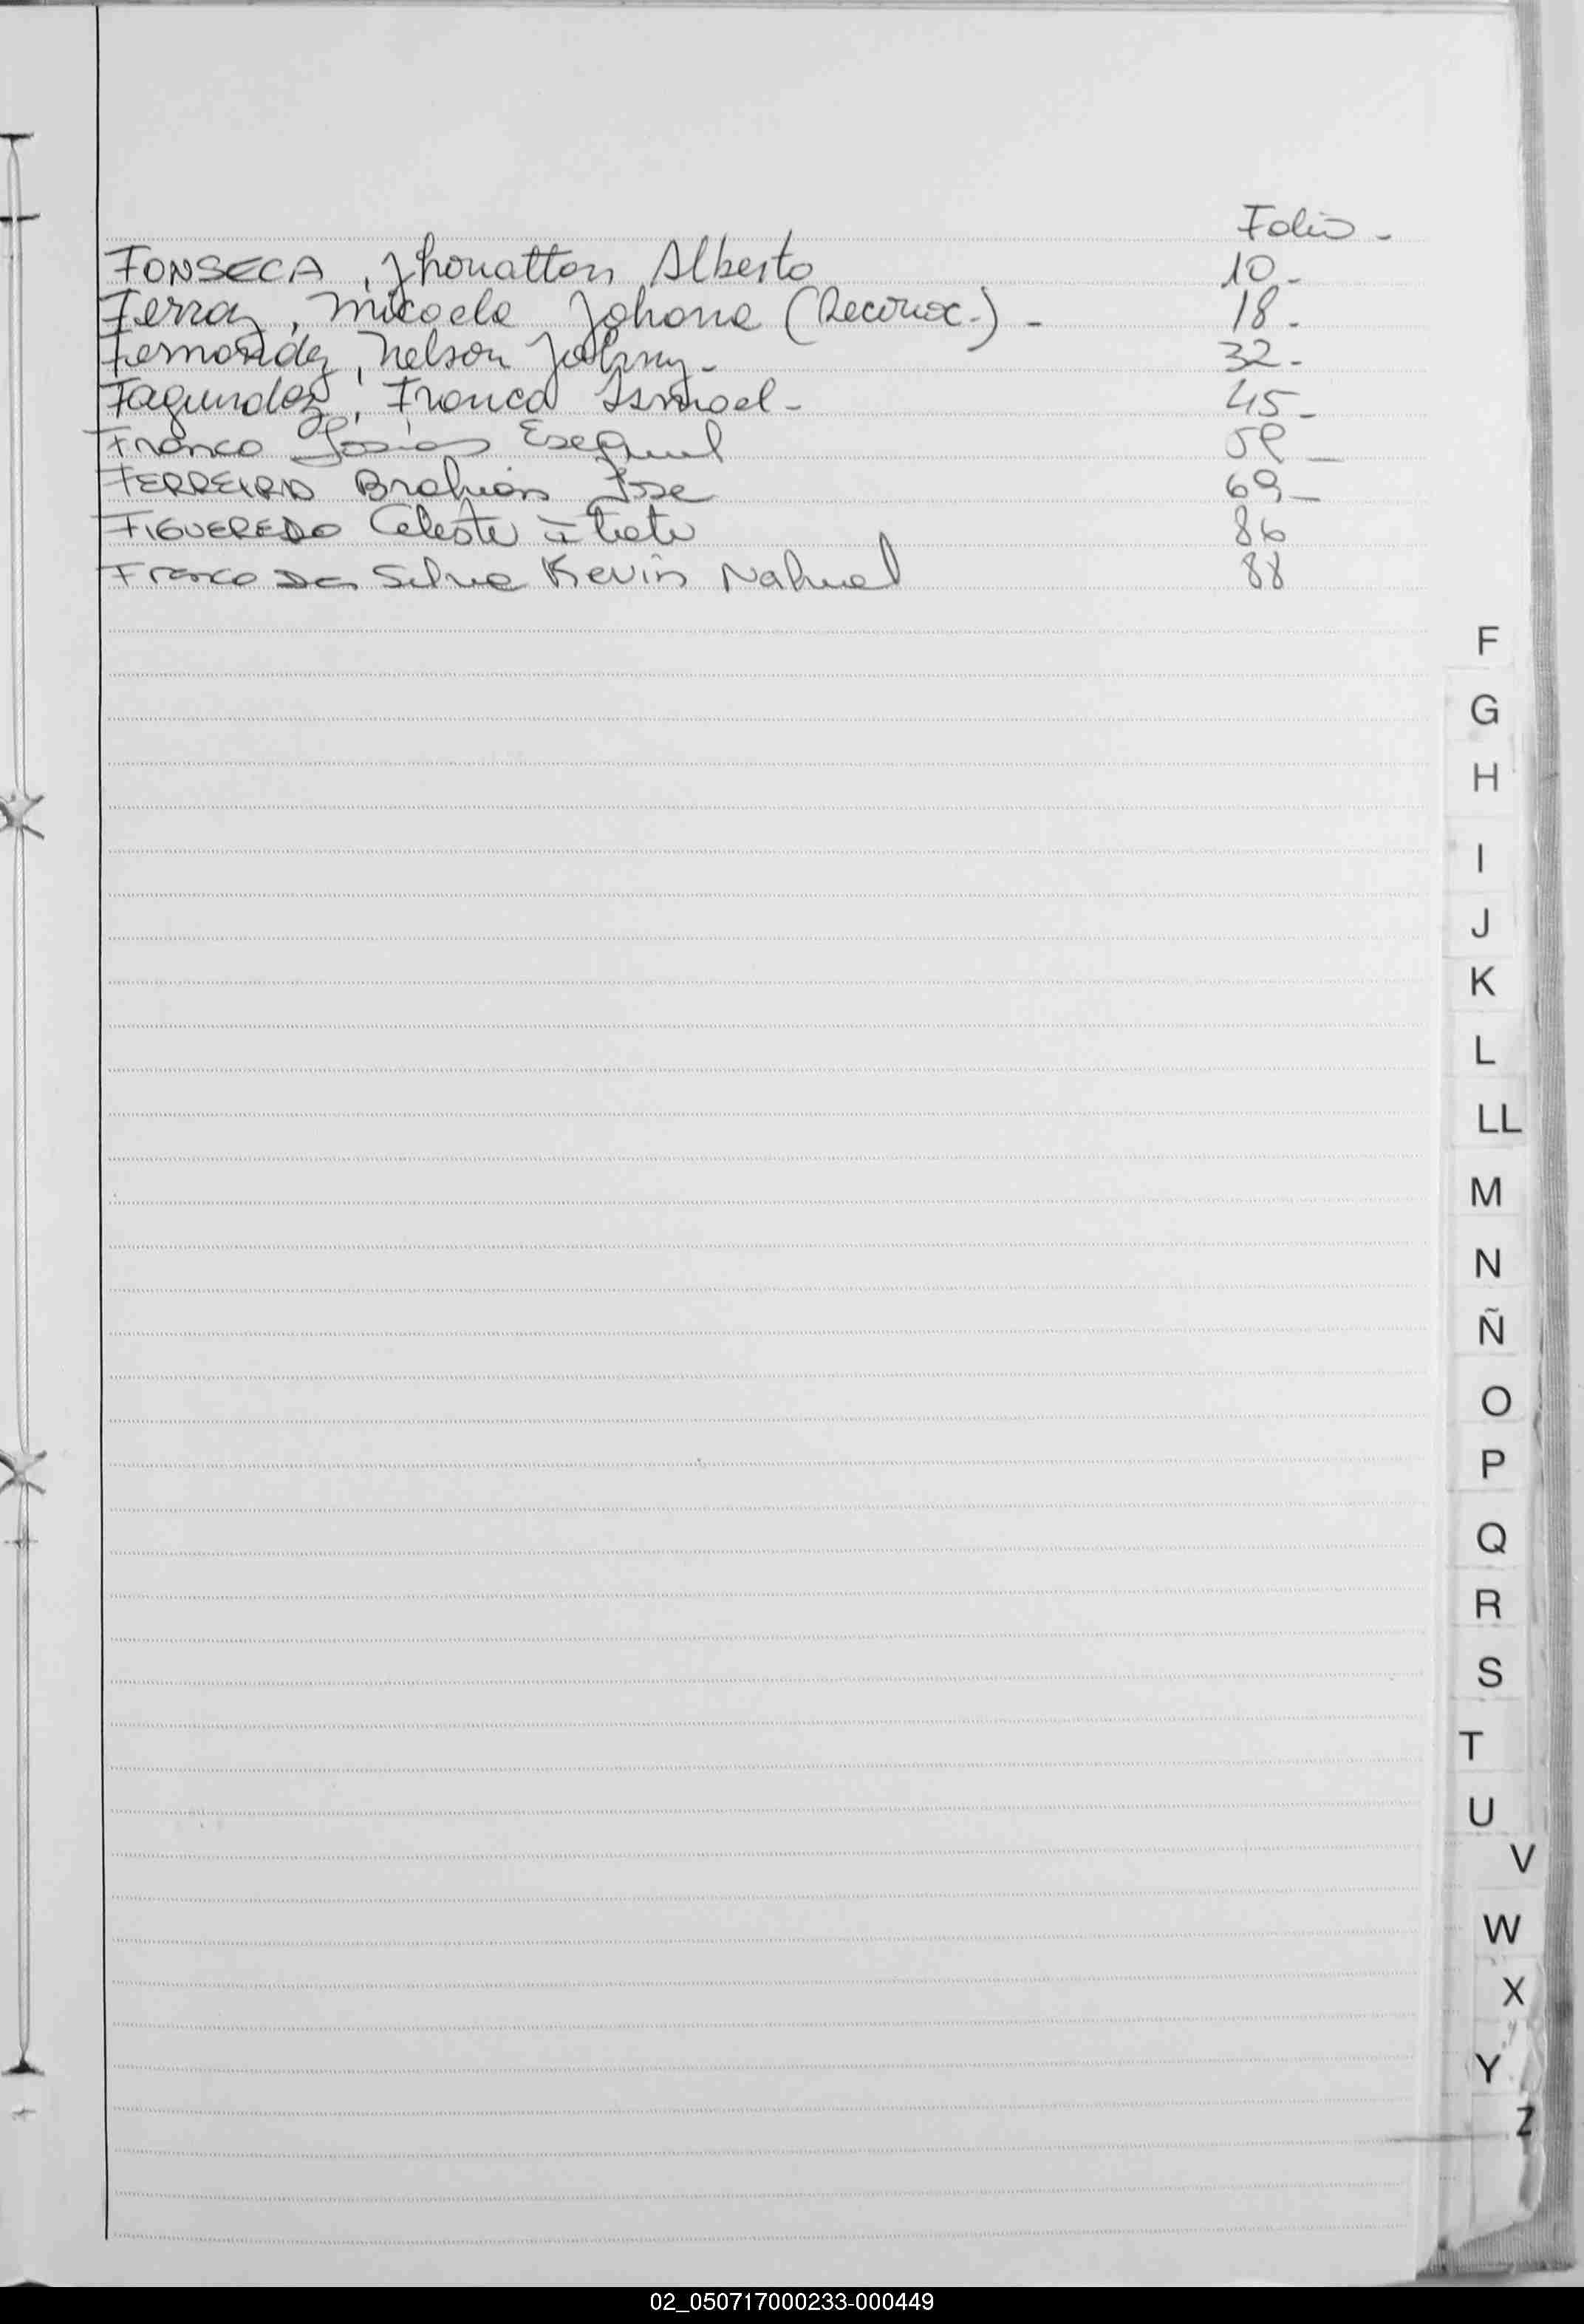 Folio -
FONSECA, Jhonatton Alberto 10 -
Ferraz, Micaela Johana (Reconoc.) - 18 -
Fernandez, Nelson Johnny - 32 -
Fagundez, Franco Ismael - 45 -
Franco Josias Esequiel
FERREIRA Brahian Jose 69 -
FIGUEREDO Celeste 86
Franco Da Silva Kevin Nahuel 88
F
G
H
I
J
K
L
LL
M
N
Ñ
O
P
Q
R
S
T
U
V
W
X
Y
Z
02_050717000233-000449